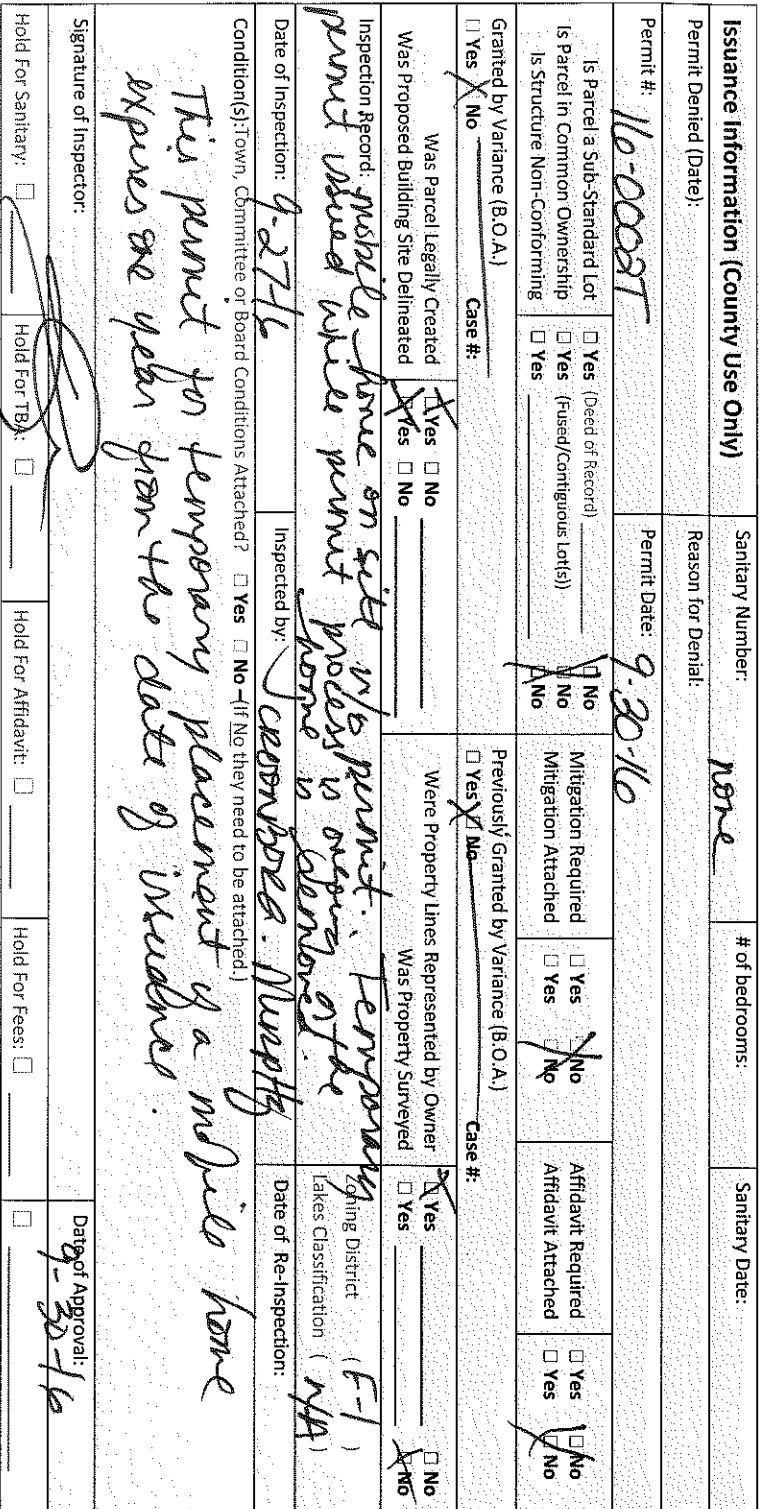 Issuance Information (County Use Only)
Sanitary Number: none
# of bedrooms:
Sanitary Date:
Permit Denied (Date):
Reason for Denial:
Permit #: 16-0002T
Permit Date: 9-30-16
Is Parcel a Sub-Standard Lot ☐ Yes (Deed of Record) ☒ No
Is Parcel in Common Ownership ☐ Yes (Fused/Contiguous Lot(s)) ☒ No
Is Structure Non-Conforming ☐ Yes ☒ No
Mitigation Required ☐ Yes ☒ No
Mitigation Attached ☐ Yes ☒ No
Affidavit Required ☐ Yes ☒ No
Affidavit Attached ☐ Yes ☒ No
Granted by Variance (B.O.A.)
☐ Yes ☒ No Case #:
Previously Granted by Variance (B.O.A.)
☐ Yes ☒ No Case #:
Was Parcel Legally Created ☒ Yes ☐ No
Was Proposed Building Site Delineated ☒ Yes ☐ No
Were Property Lines Represented by Owner ☒ Yes ☐ No
Was Property Surveyed ☐ Yes ☒ No
Inspection Record: mobile home on site w/o permit. Temporary
permit issued while permit process is or the
home is removed.
Zoning District (F-1)
Lakes Classification (N/A)
Date of Inspection: 9-27-16
Inspected by: Murphy
Date of Re-Inspection:
Condition(s): Town, Committee or Board Conditions Attached? ☐ Yes ☐ No – (If No they need to be attached.)
This permit for temporary placement of a mobile home
expires one year from the date of issuance.
Signature of Inspector:
Date of Approval: 9-30-16
Hold For Sanitary: ☐
Hold For TBA: ☐
Hold For Affidavit: ☐
Hold For Fees: ☐
☐